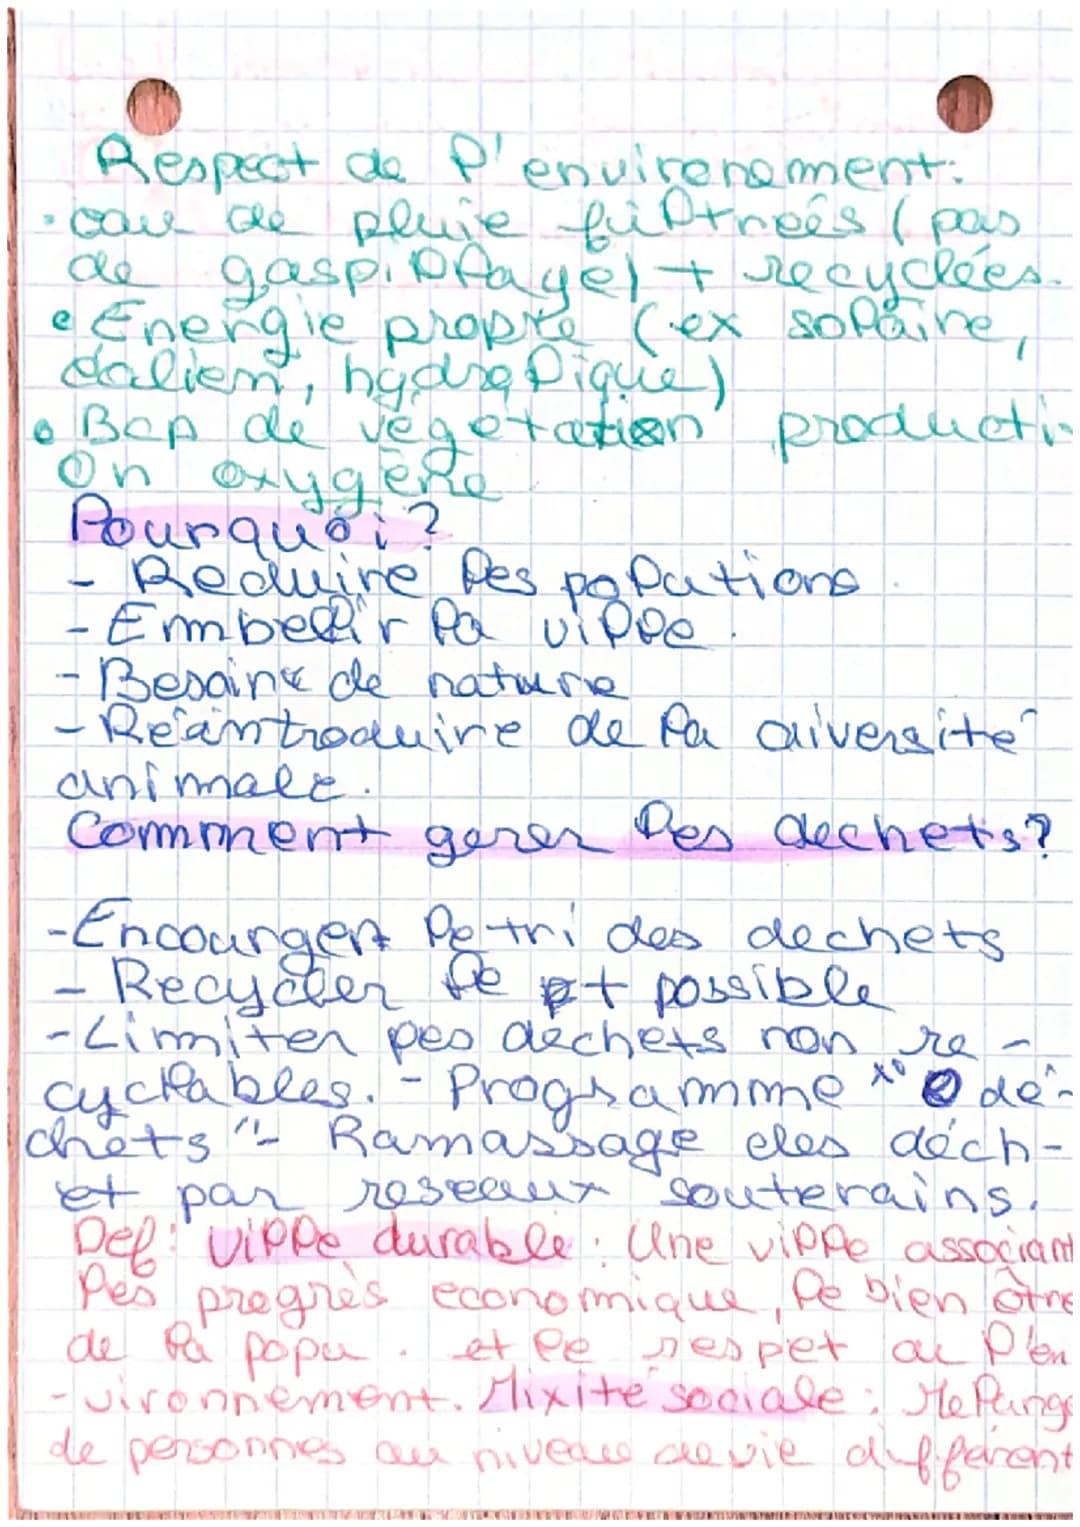 Respect de l'environement:
• eau de pluie filtreés (pas
de gaspillage) + recyclées.
• Energie propre (ex solaire,
éolien, hydrolique)
• Bcp de végetation producti-
on oxygène
Pourquoi?
- Reduire les polutions.
- Embellir la ville.
- Besoins de nature
- Réantroduire de la diversité
animale.
Comment gerer les dechets?
- Encourger le tri des dechets
- Recycler le + possible
- Limiter les dechets non re-
cyclables. - Programme "0 dé-
chets" - Ramassage des déch-
et par reseaux souterains.
Def: Ville durable: Une ville associant
les progrès economique, le bien être
de la popu. et le respet de l'en
-vironnement. Mixité sociale: Melange
de personnes au niveau de vie différent